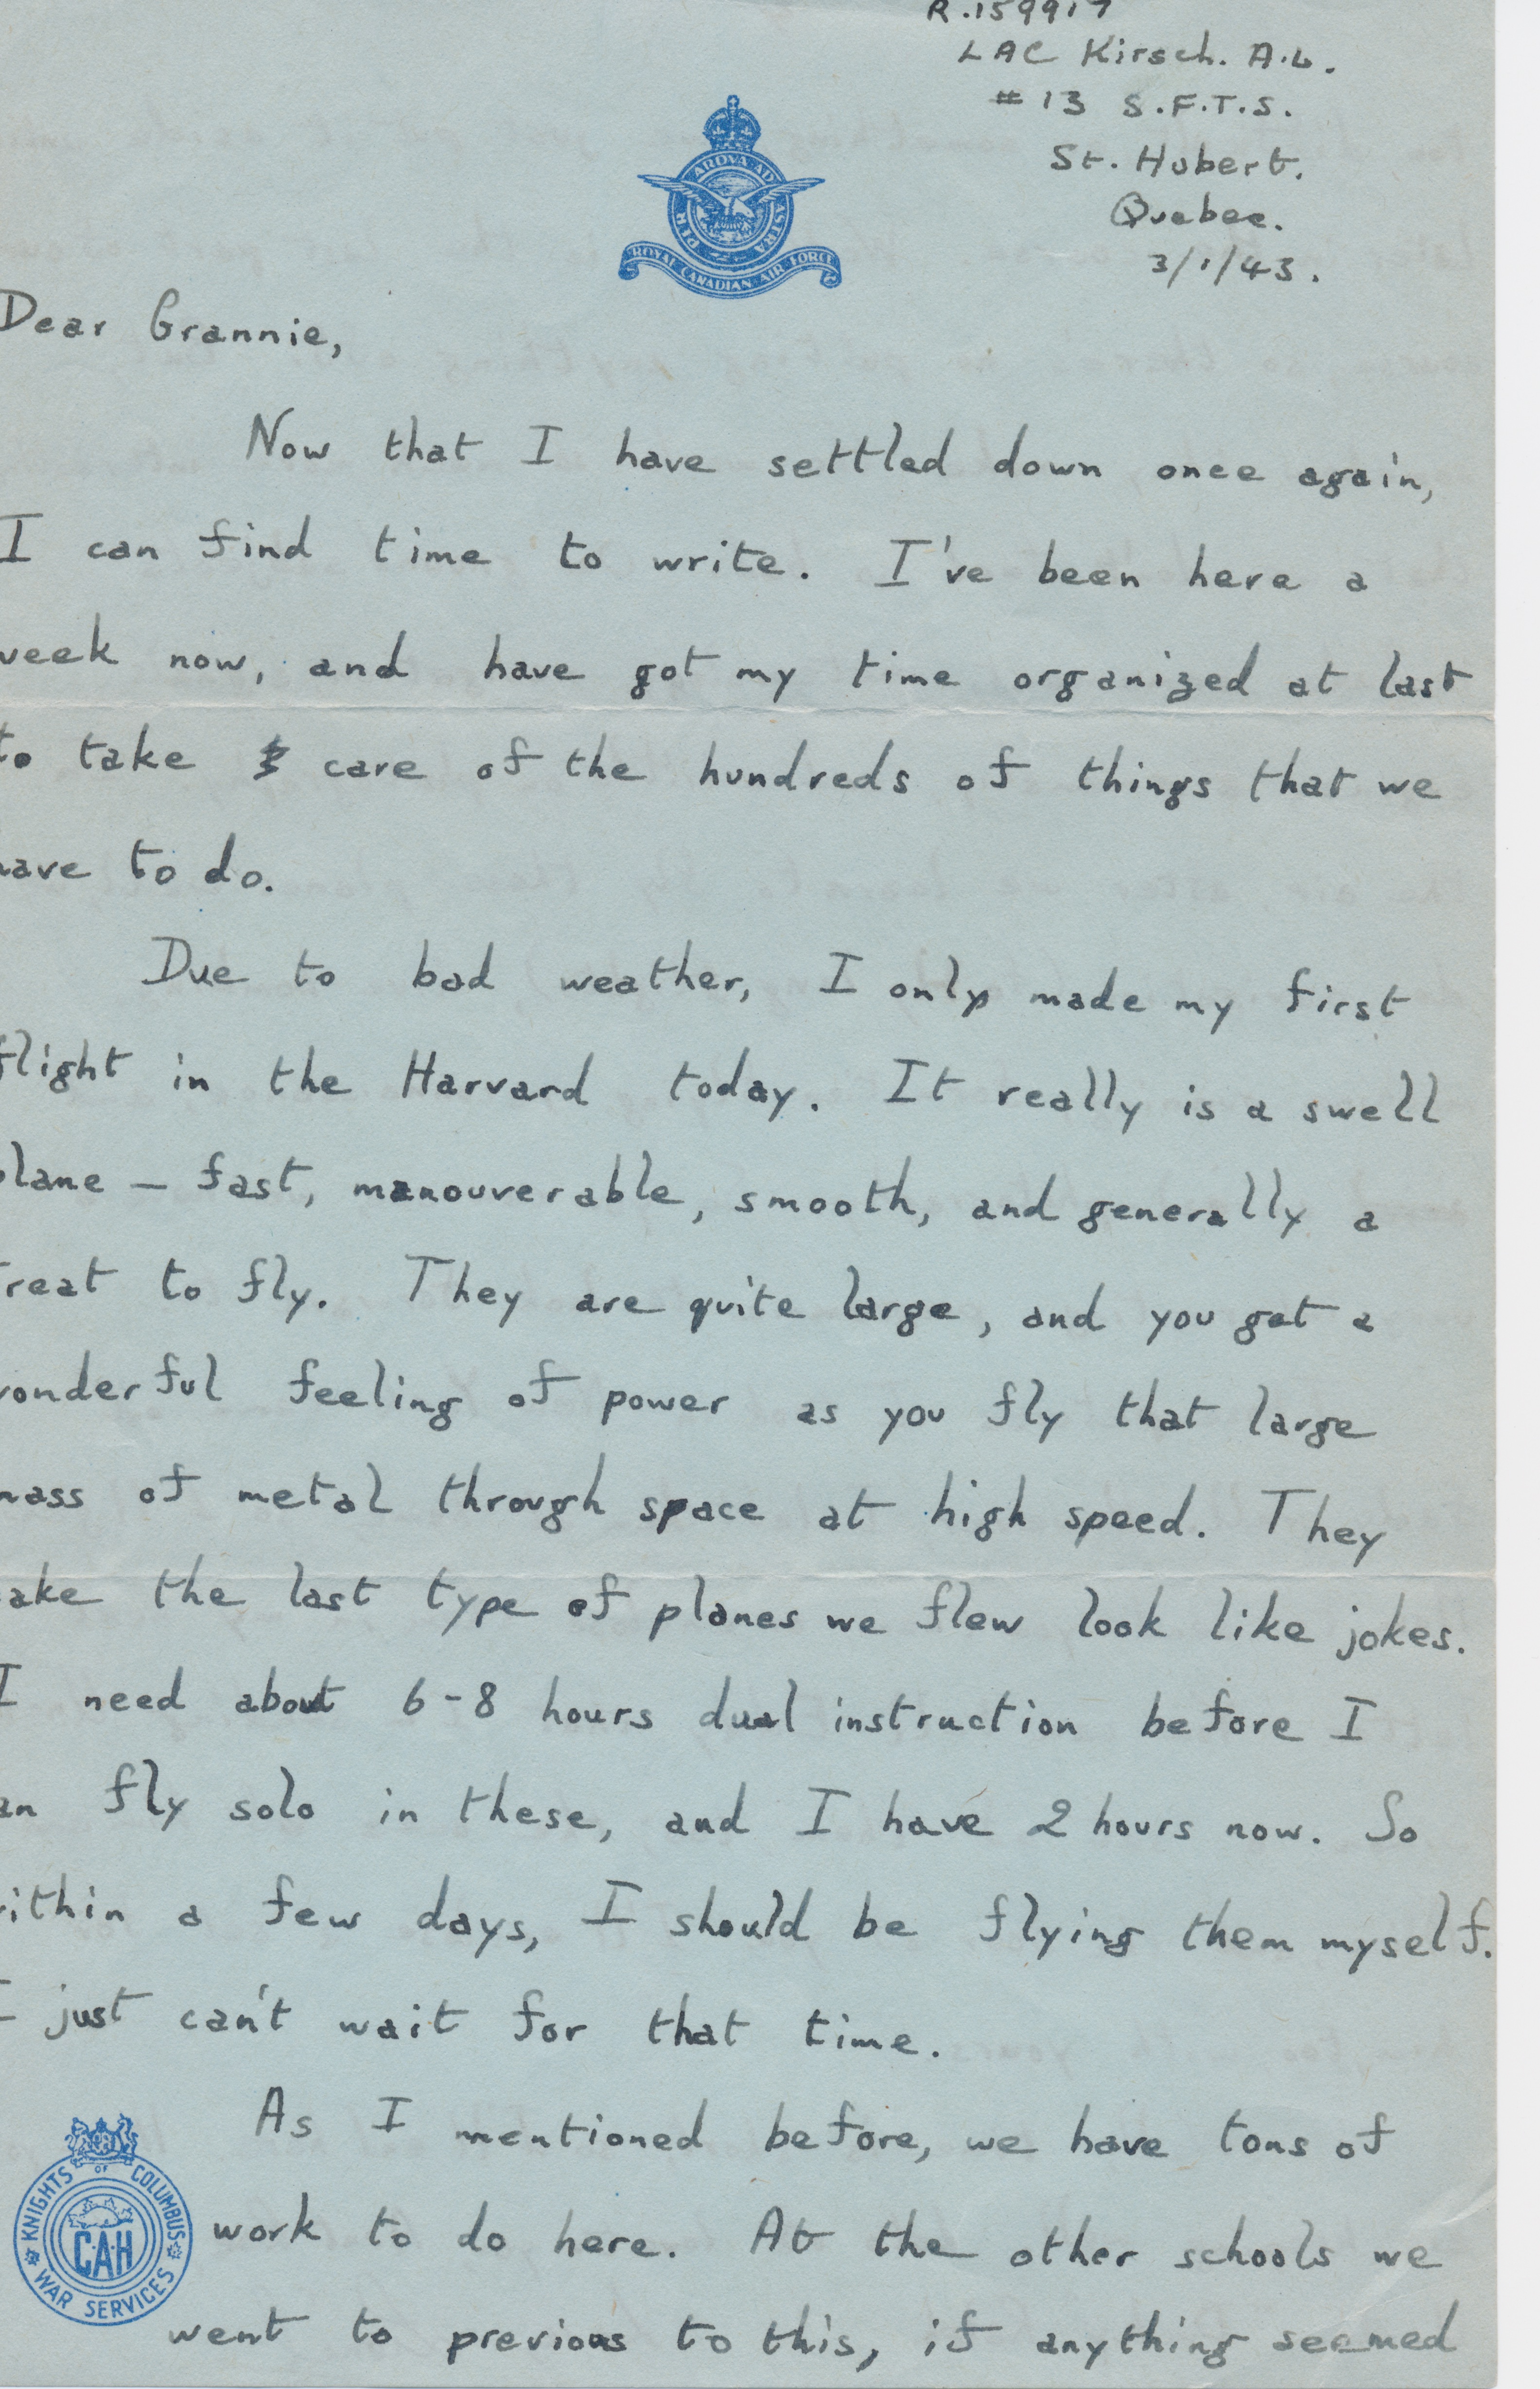 R.159917
LAC Kirsch. A.L.
#13 S.F.T.S.
St. Hubert.
Quebec.
3/1/43.
PER ARDVA AD ASTRA
ROYAL CANADIAN AIR FORCE
Dear Grannie,
Now that I have settled down once again,
I can find time to write. I've been here a
week now, and have got my time organized at last
to take care of the hundreds of things that we
have to do.
Due to bad weather, I only made my first
flight in the Harvard today. It really is a swell
plane — fast, manouverable, smooth, and generally a
treat to fly. They are quite large, and you get a
wonderful feeling of power as you fly that large
mass of metal through space at high speed. They
ake the last type of planes we flew look like jokes.
I need about 6-8 hours dual instruction before I
an fly solo in these, and I have 2 hours now. So
within a few days, I should be flying them myself.
I just can't wait for that time.
As I mentioned before, we have tons of
work to do here. At the other schools we
went to previous to this, if anything seemed
KNIGHTS OF COLUMBUS
C·A·H
WAR SERVICES